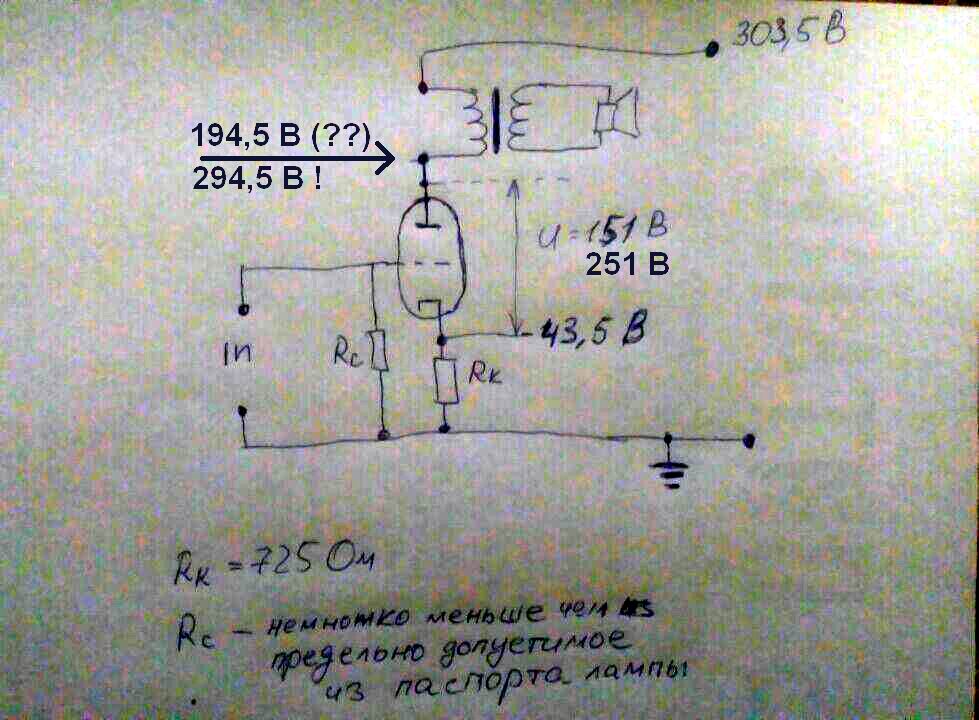 303,5 В
194,5 В (??)
294,5 В !
U = 151 В
251 В
43,5 В
In
Rc
Rк
Rк = 725 Ом
Rc – немножко меньше чем
предельно допустимое
из паспорта лампы